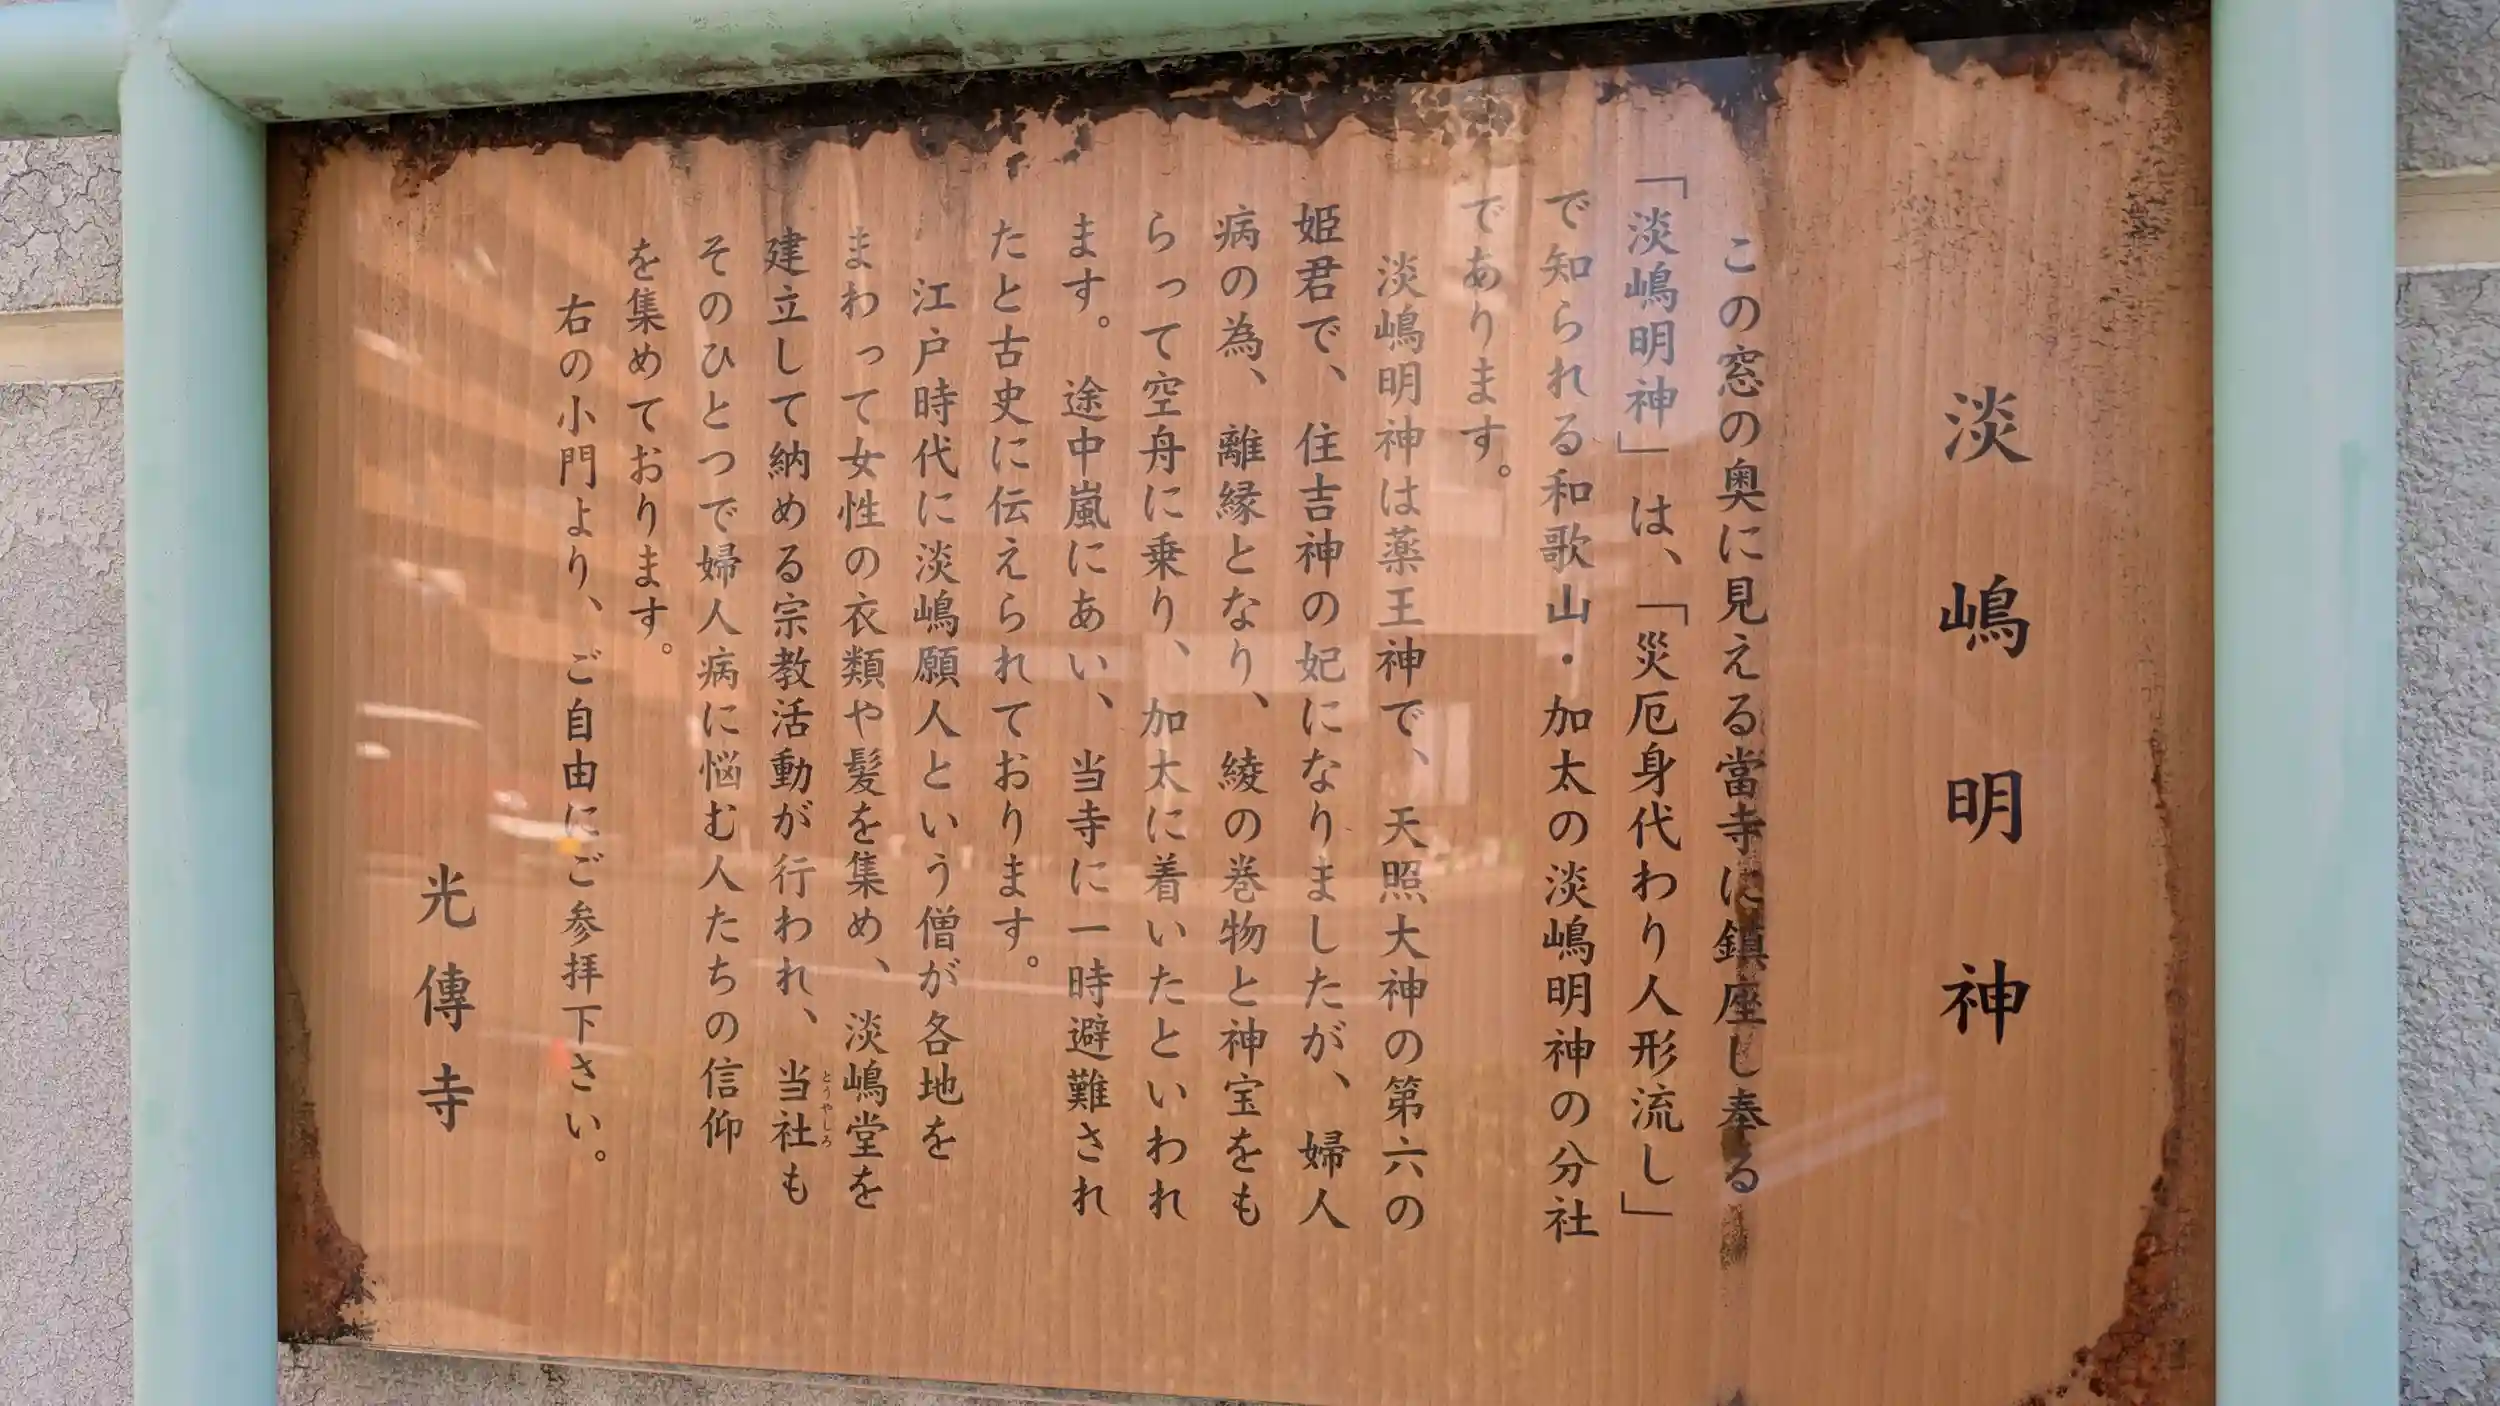 淡嶋明神
この窓の奥に見える當寺に鎮座し奉る
「淡嶋明神」は、「災厄身代わり人形流し」
で知られる和歌山・加太の淡嶋明神の分社
であります。
淡嶋明神は薬王神で、天照大神の第六の
姫君で、住吉神の妃になりましたが、婦人
病の為、離縁となり、綾の巻物と神宝をも
らって空舟に乗り、加太に着いたといわれ
ます。途中嵐にあい、当寺に一時避難され
たと古史に伝えられております。
江戸時代に淡嶋願人という僧が各地を
まわって女性の衣類や髪を集め、淡嶋堂を
建立して納める宗教活動が行われ、当社も
とうやしろ
そのひとつで婦人病に悩む人たちの信仰
を集めております。
右の小門より、ご自由にご参拝下さい。
光傳寺